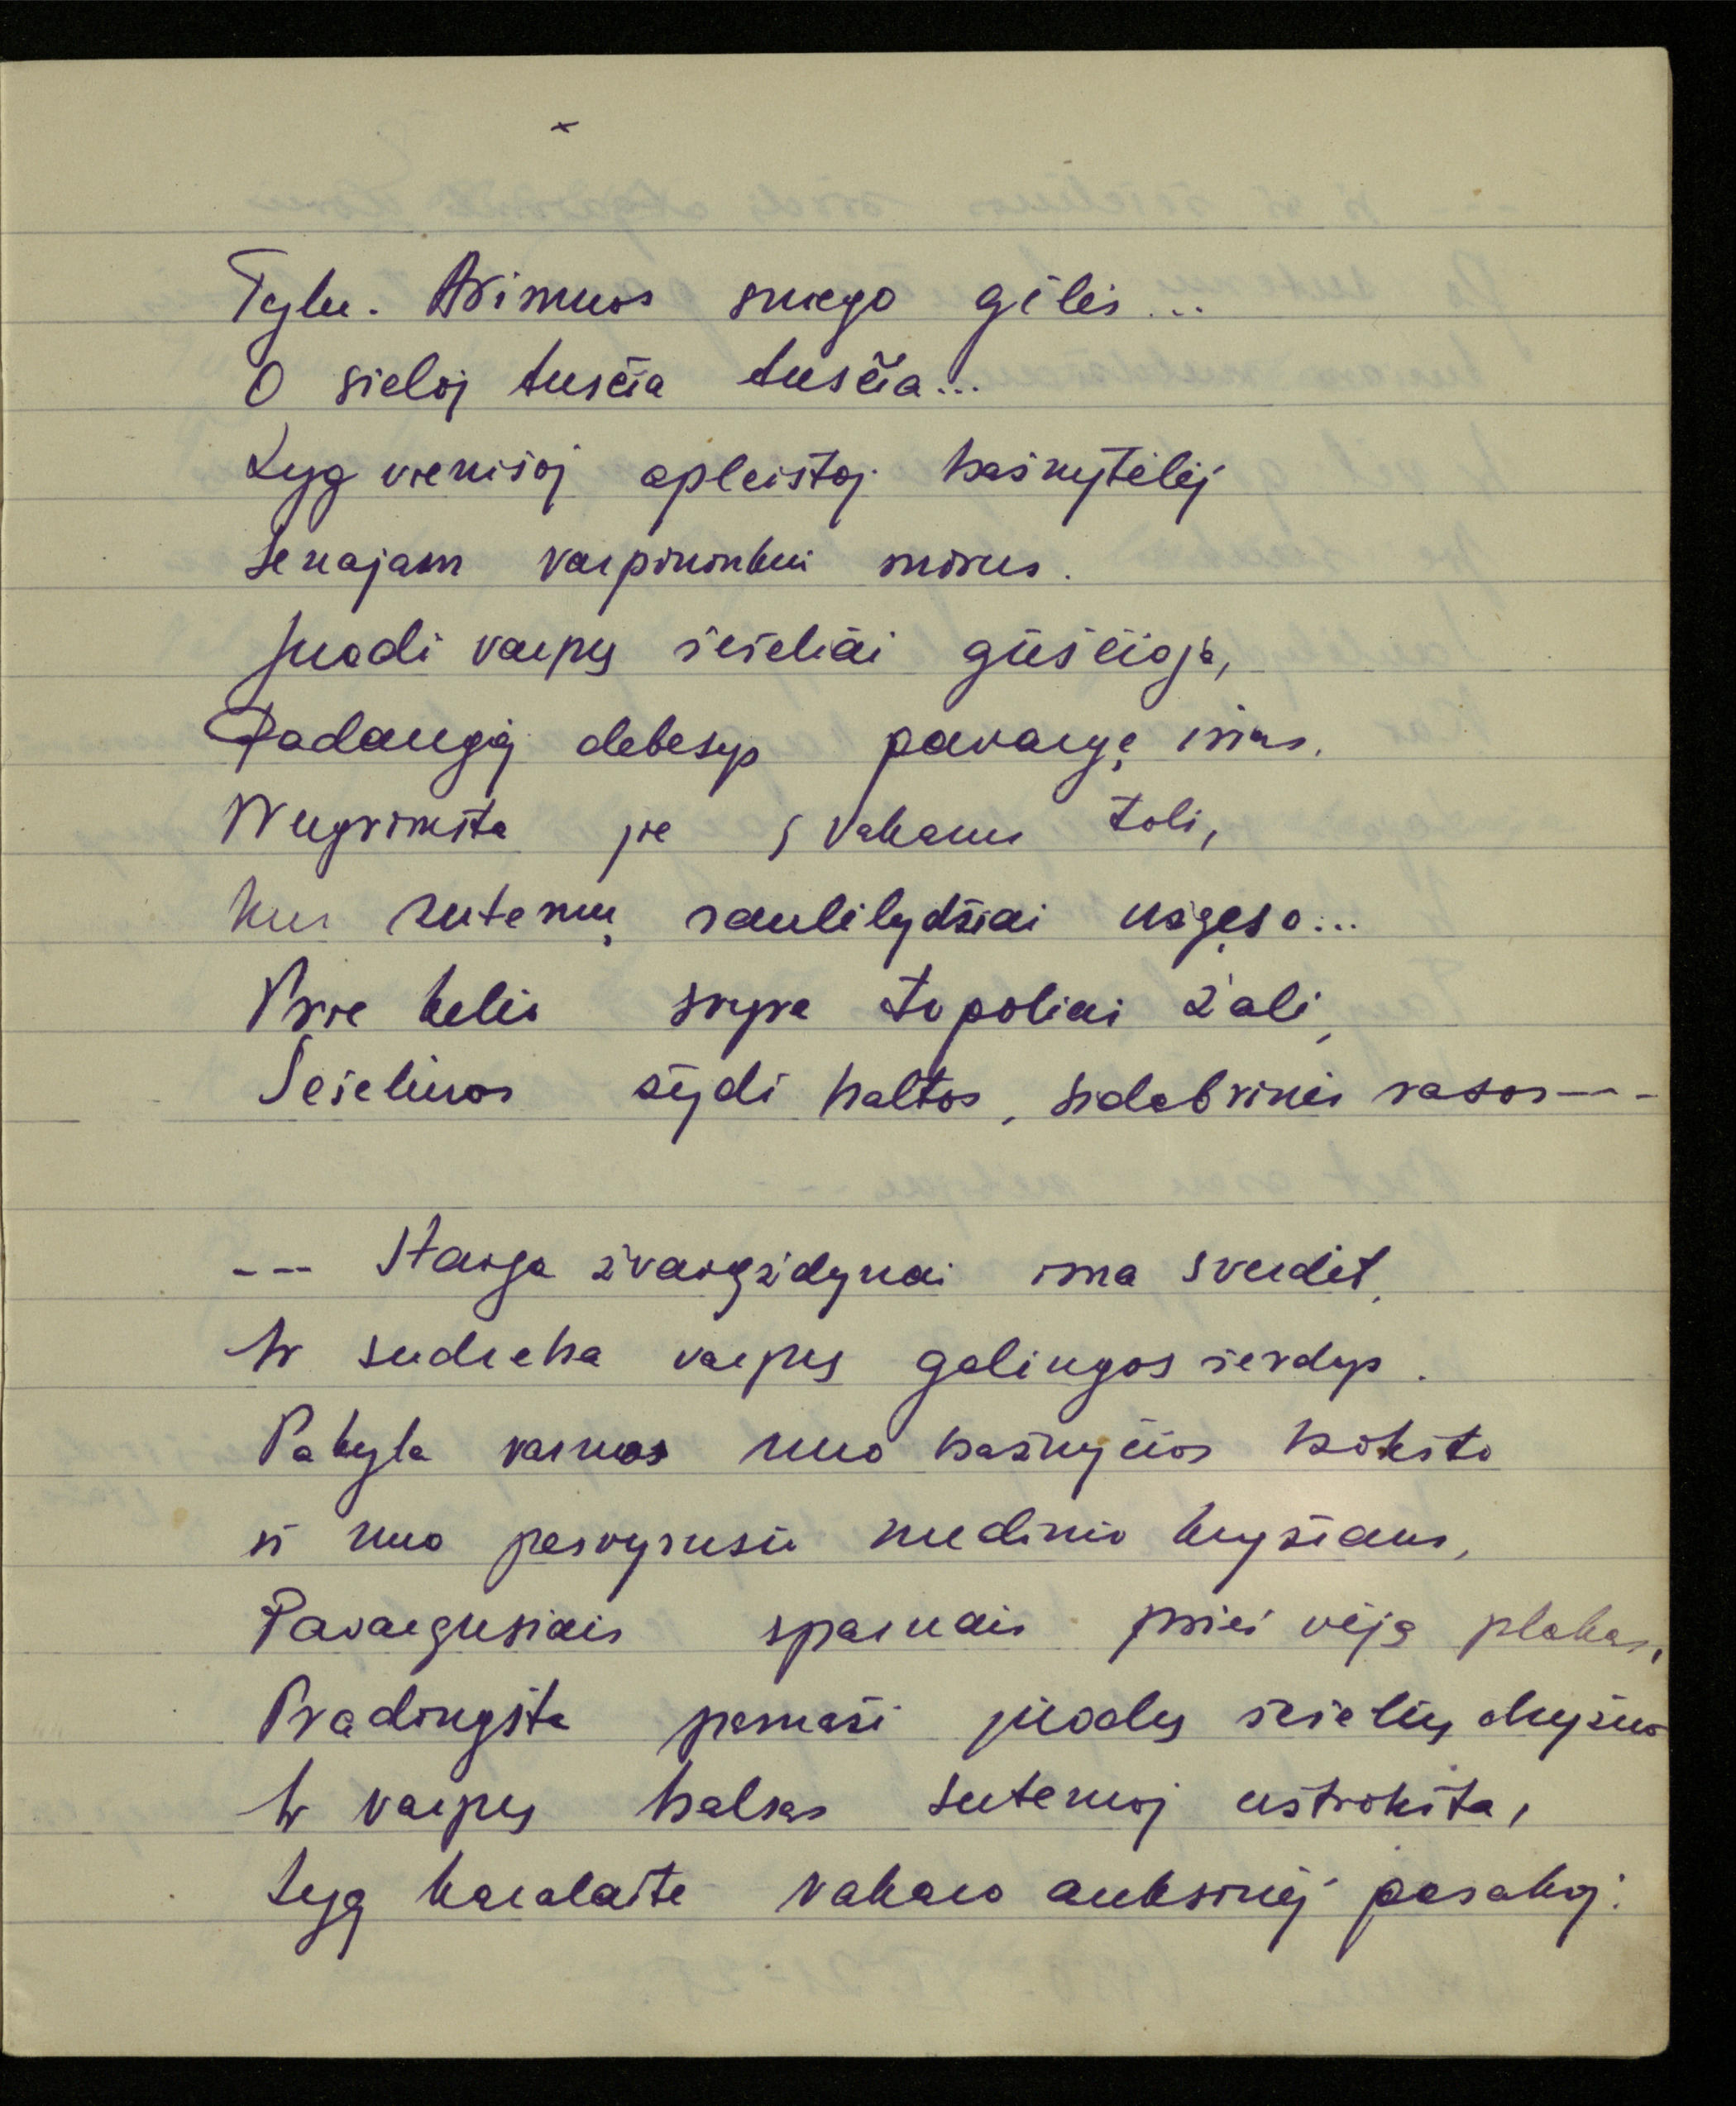 ×
Tylu. Arimuos sniego gėlės...
O sieloj tuščia tuščia...
Lyg vienišoj apleistoj bažnytėlėj
Senajam varpininkui mirus.
Juodi varpų šešėliai gūščioja,
Padangėj debesys pavargę irias.
Nugrimsta jie į vakarus toli,
kur sutemų saulėlydžiai užgęso...
Prie kelio svyra topoliai žali,
Šešėliuos žydi baltos, sidabrinės rasos---
--- Staiga žvaigždynai ima sverdėt,
Ir sudreba varpų galingos širdys.
Pakyla varnos nuo bažnyčios bokšto
ir nuo pasvyrusio medinio kryžiaus,
Pavargusiais sparnais prieš vėją plakas,
Pradingsta pamaži juodų šešėlių
Ir varpų balsas sutemoj užtrokšta,
Lyg karalaitė vakaro auksinėj pasakoj.